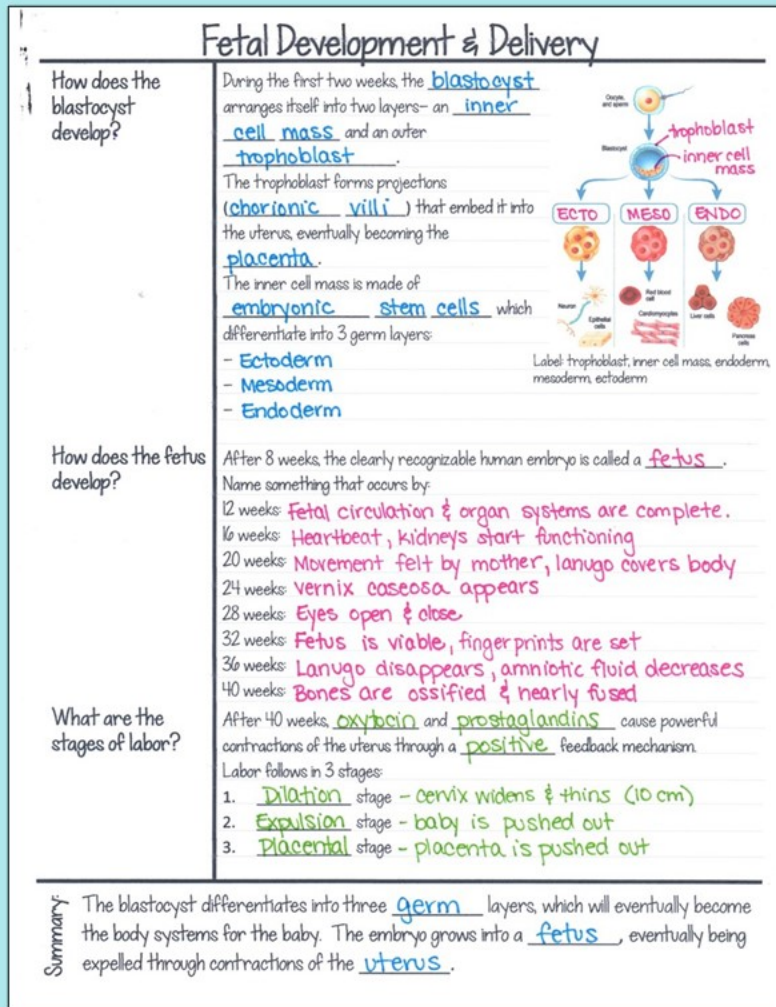 Fetal Development & Delivery
How does the
blastocyst
develop?
During the first two weeks, the blastocyst
arranges itself into two layers- an inner
cell mass and an outer
trophoblast.
The trophoblast forms projections
(chorionic villi) that embed it into
the uterus, eventually becoming the
placenta.
The inner cell mass is made of
embryonic stem cells which
differentiate into 3 germ layers:
- Ectoderm
- Mesoderm
- Endoderm
Oocyte,
and sperm
trophoblast
Blastocyst
inner cell
mass
ECTO MESO ENDO
Neuron
Epithelial
cells
Red blood
cell
Cardiomyocytes
Liver cells
Pancreas
cells
Label: trophoblast, inner cell mass, endoderm,
mesoderm, ectoderm
How does the fetus
develop?
After 8 weeks, the clearly recognizable human embryo is called a fetus.
Name something that occurs by:
12 weeks: Fetal circulation & organ systems are complete.
16 weeks: Heartbeat, kidneys start functioning
20 weeks: Movement felt by mother, lanugo covers body
24 weeks: vernix caseosa appears
28 weeks: Eyes open & close
32 weeks: Fetus is viable, fingerprints are set
36 weeks: Lanugo disappears, amniotic fluid decreases
40 weeks: Bones are ossified & nearly fused
What are the
stages of labor?
After 40 weeks, oxytocin and prostaglandins cause powerful
contractions of the uterus through a positive feedback mechanism.
Labor follows in 3 stages:
1. Dilation stage - cervix widens & thins (10 cm)
2. Expulsion stage - baby is pushed out
3. Placental stage - placenta is pushed out
Summary:
The blastocyst differentiates into three germ layers, which will eventually become
the body systems for the baby. The embryo grows into a fetus, eventually being
expelled through contractions of the uterus.